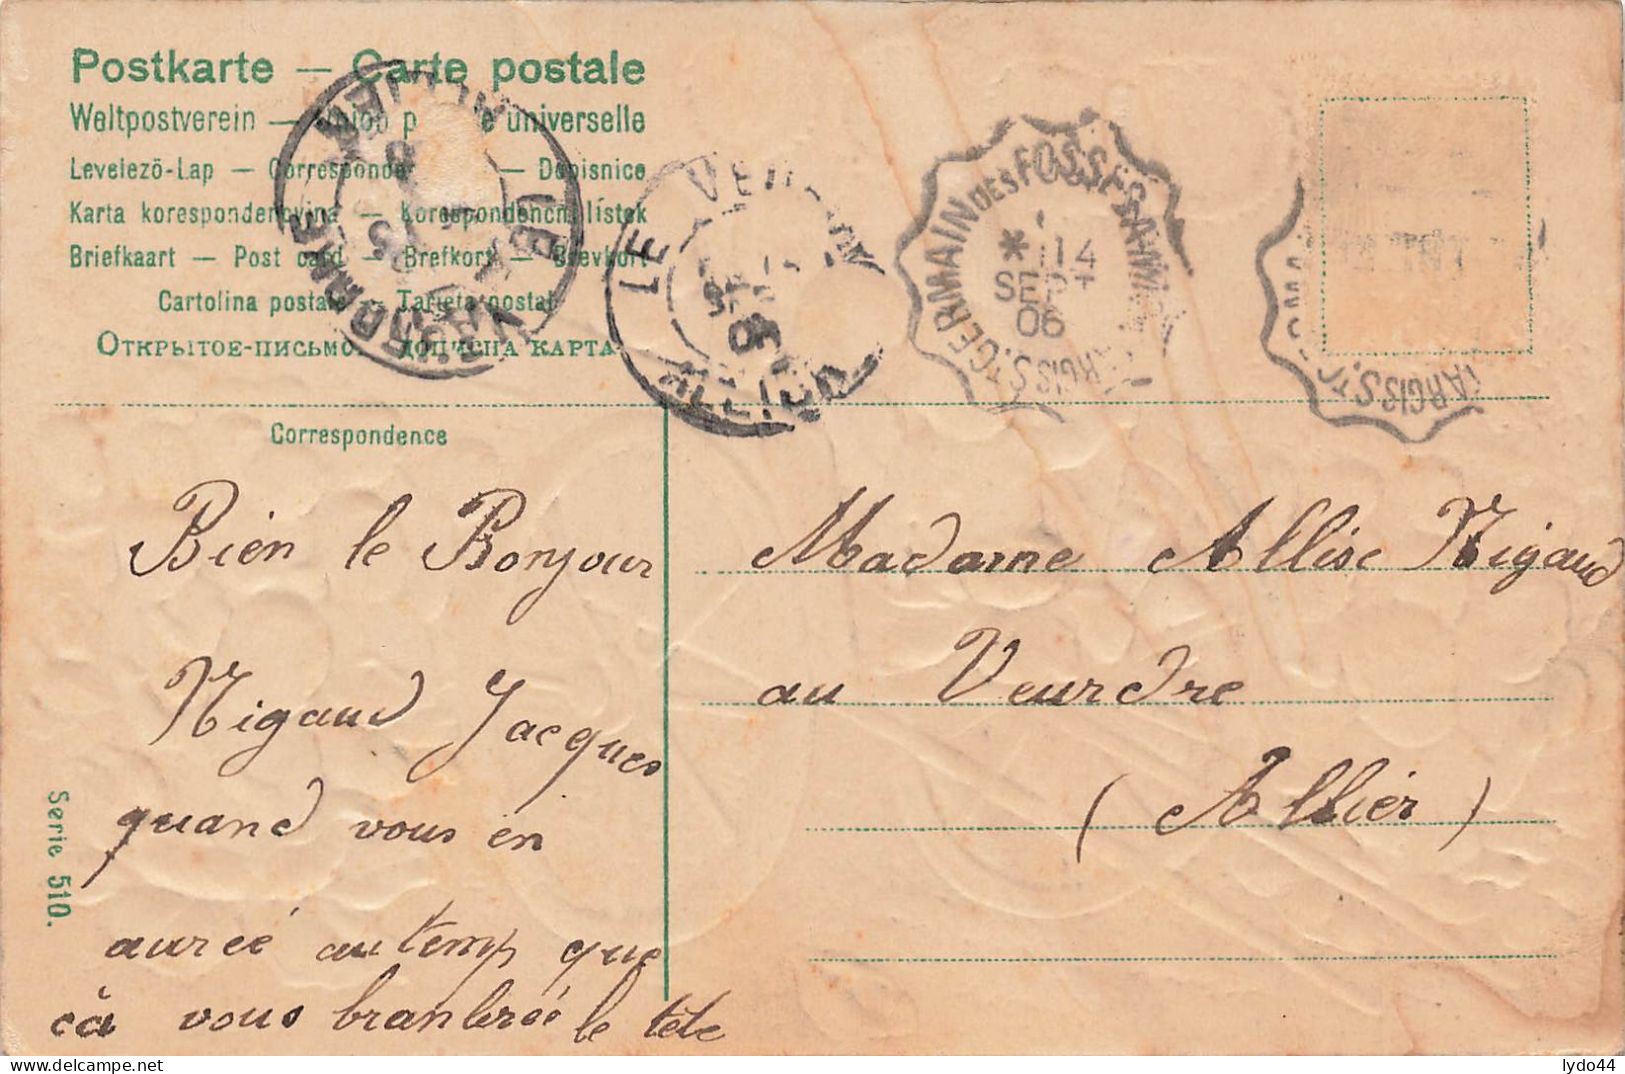 Postkarte — Carte postale
Weltpostverein — Union p e universelle
Levelezö-Lap — Corresponde — Dopisnice
Karta korespondencyjna — Korespondenční lístek
Briefkaart — Post card — Brefkort — Brevkort
Cartolina postale — Tarjeta postal
Открытое-письмо — дописна карта
Correspondence
LE VEURDRE
ALLIER
ST GERMAIN DES FOSSES A
* 14
SEPT
06
ARGIS
Bien le Bonjour
Rigaud Jacques
quand vous en
aureé autemp que
cà vous branlereé le tête
Madame Allise Rigaud
au Veurdre
(Allier)
Serie 510.
lydo44